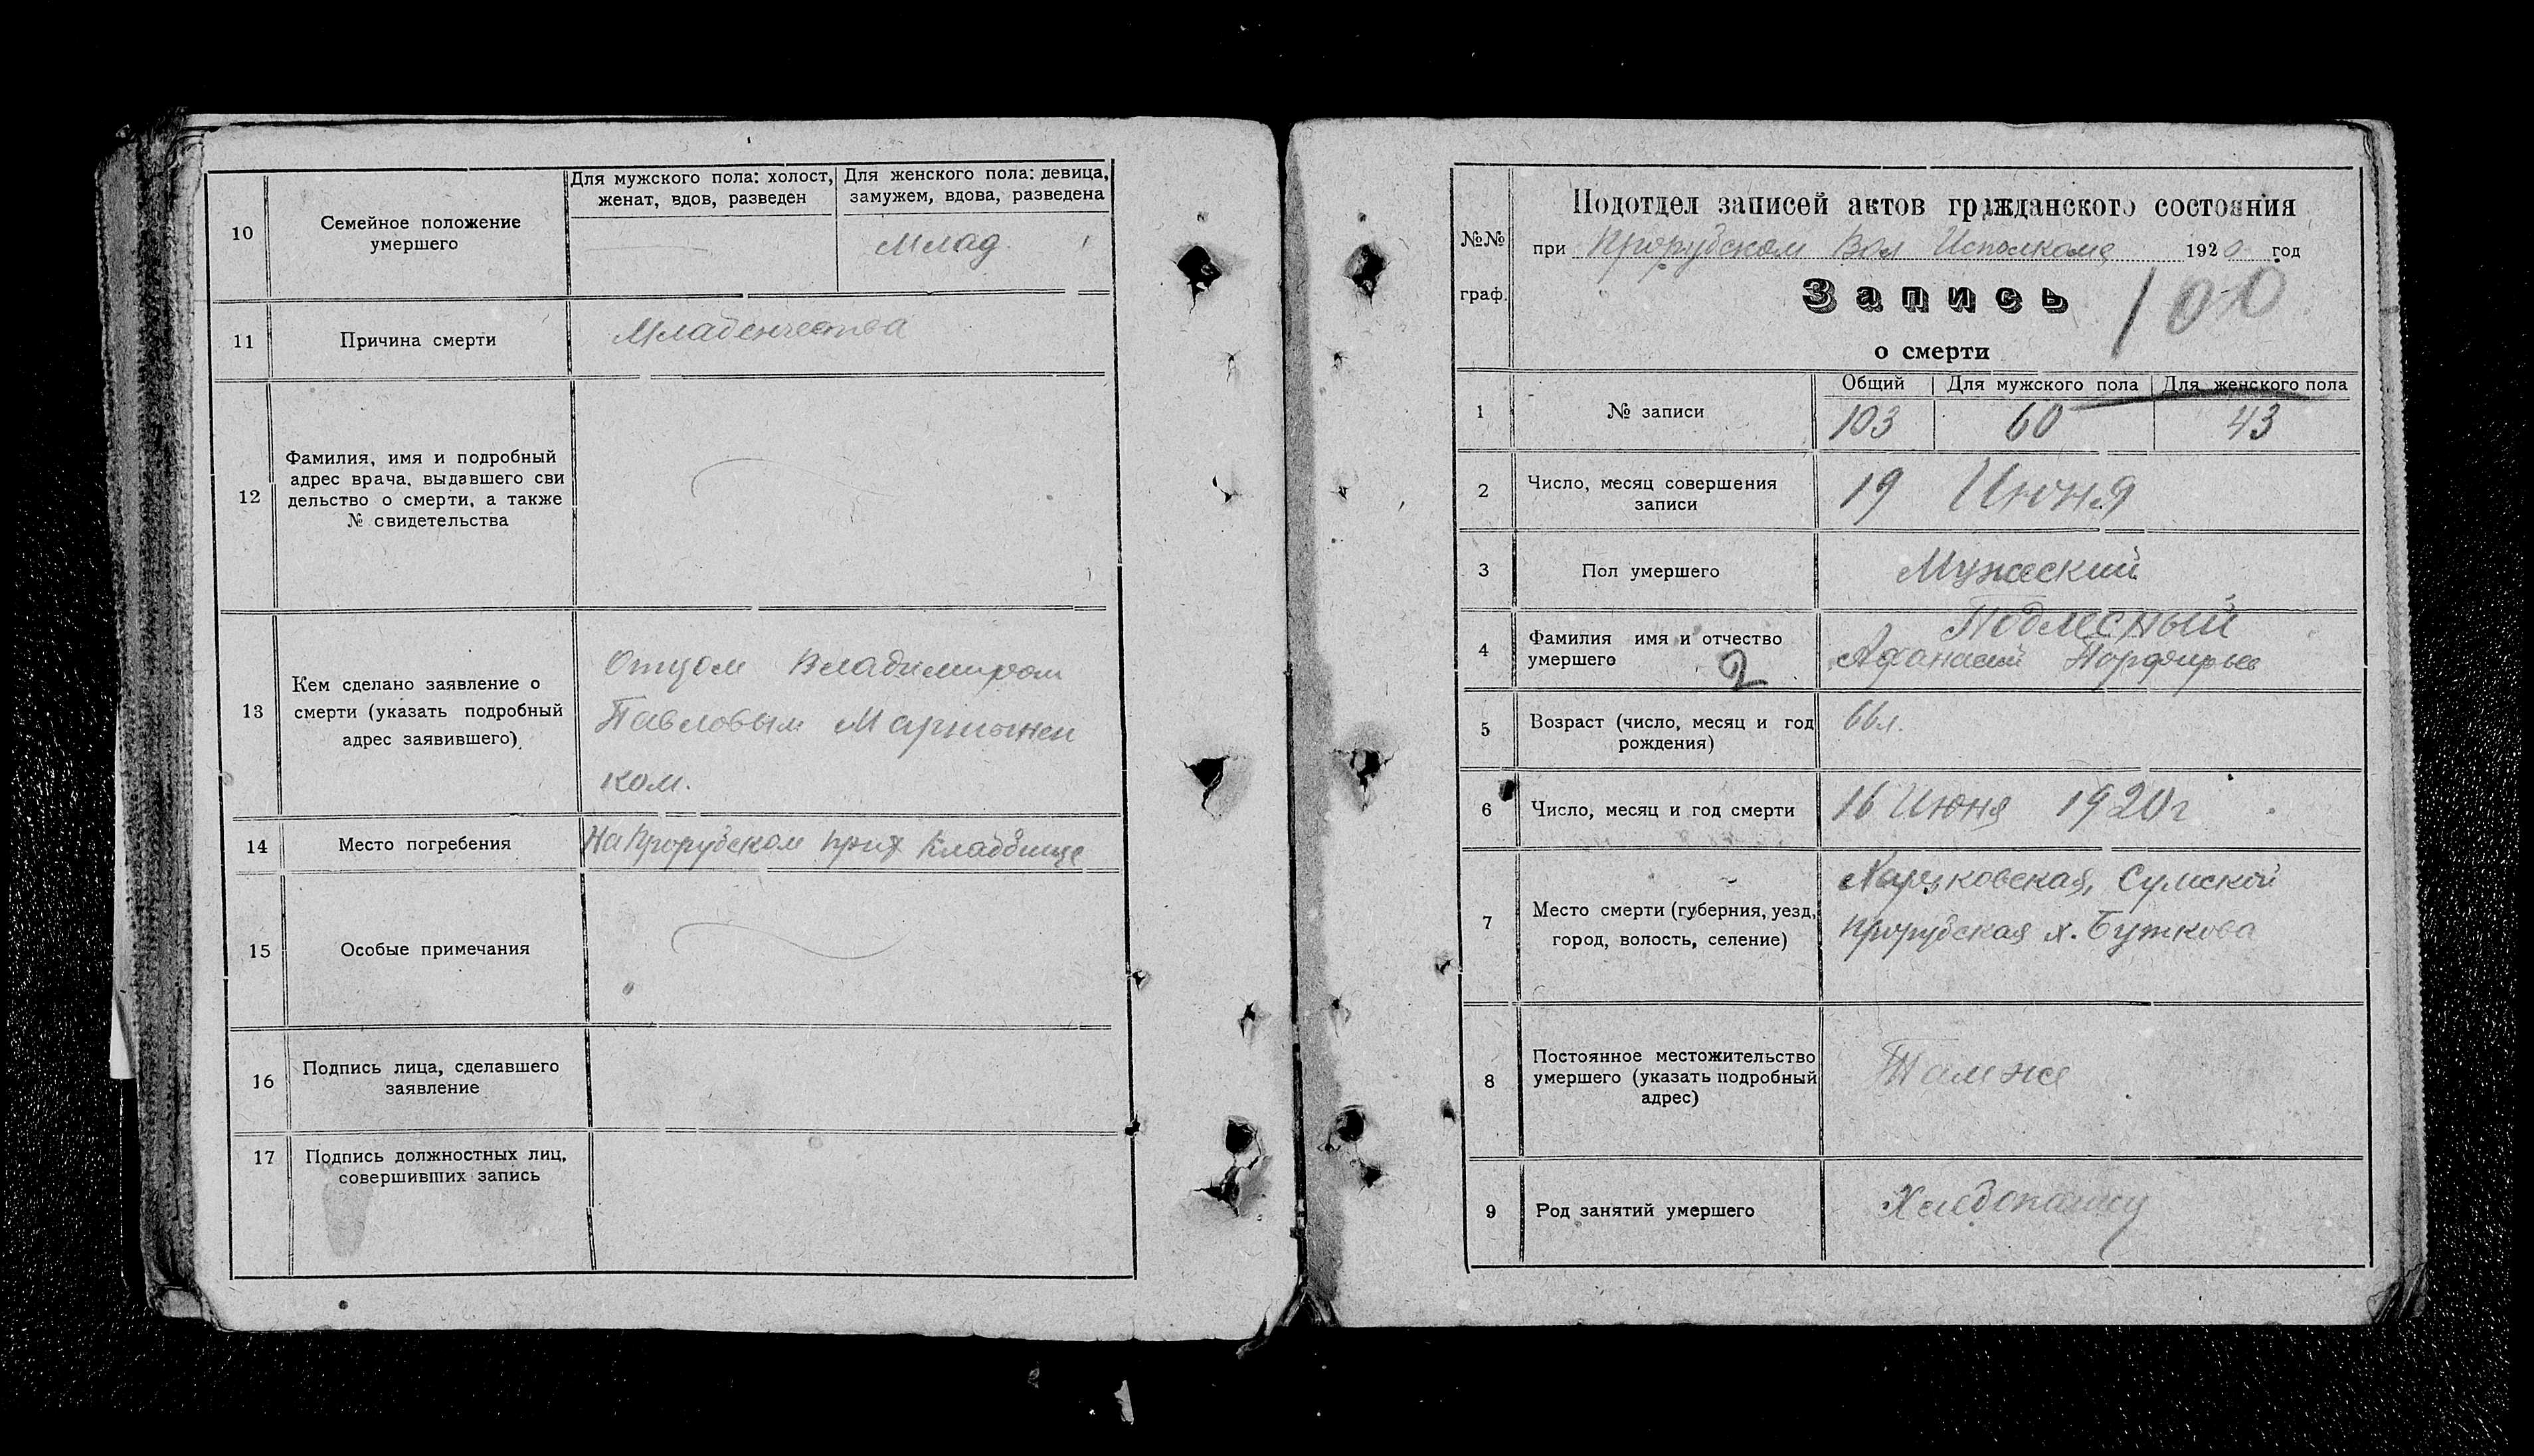 10
Семейное положение
умершего
Для мужского пола: холост,
женат, вдов, разведен
Для женского пола: девица,
замужем, вдова, разведена
Млад.
11
Причина смерти
Младенчества
12
Фамилия, имя и подробный
адрес врача, выдавшего сви
дельство о смерти, а также
№ свидетельства
13
Кем сделано заявление о
смерти (указать подробный
адрес заявившего)
Отцом Владимиром
Павловым Мартынен
ком.
14
Место погребения
На Прорубском прих кладбище
15
Особые примечания
16
Подпись лица, сделавшего
заявление
17
Подпись должностных лиц,
совершивших запись
№№
граф.
Подотдел записей актов гражданского состояния
при Прорубском Вол Исполкоме 1920 год
Запись
100
о смерти
1
№ записи
Общий
Для мужского пола
Для женского пола
103
60
43
2
Число, месяц совершения
записи
19 Июня
3
Пол умершего
Мужеский
4
Фамилия имя и отчество
умершего
2
Подлесный
Афанасий Порфирьев
5
Возраст (число, месяц и год
рождения)
66л.
6
Число, месяц и год смерти
16 Июня 1920г
7
Место смерти (губерния, уезд,
город, волость, селение)
Харьковская, Сумской
Прорубская х. Буткова
8
Постоянное местожительство
умершего (указать подробный
адрес)
Там же
9
Род занятий умершего
Хлебопашец